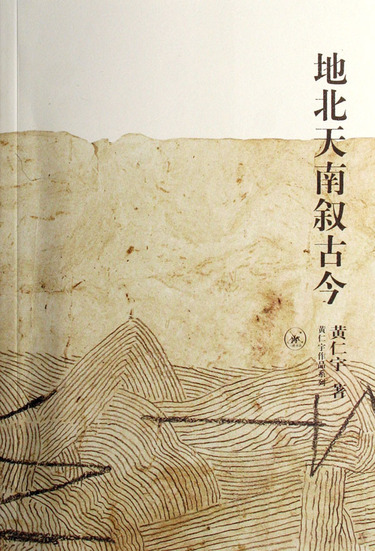 地北天南叙古今
黄仁宇 著
黄仁宇作品系列